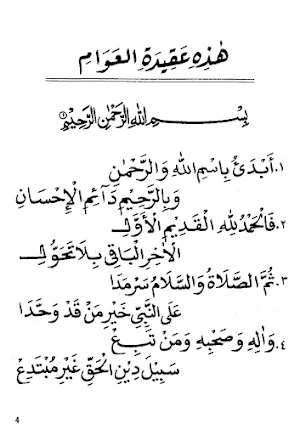 هٰذِهِ عَقِيدَةُ الْعَوَامِ
بِسْمِ اللهِ الرَّحْمٰنِ الرَّحِيْمِ
١. أَبْدَئُ بِاسْمِ اللهِ وَالرَّحْمٰنِ
وَبِالرَّحِيْمِ دَآئِمِ الْإِحْسَانِ
٢. فَالْحَمْدُ لِلّٰهِ الْقَدِيْمِ الْأَوَّلِ
الْأٰخِرِ الْبَاقِى بِلَا تَحَوُّلِ
٣. ثُمَّ الصَّلَاةُ وَالسَّلَامُ سَرْمَدَا
عَلَى النَّبِيِّ خَيْرِ مَنْ قَدْ وَحَّدَا
٤. وَاٰلِهِ وَصَحْبِهِ وَمَنْ تَبِعْ
سَبِيْلَ دِيْنِ الْحَقِّ غَيْرَ مُبْتَدِعْ
4